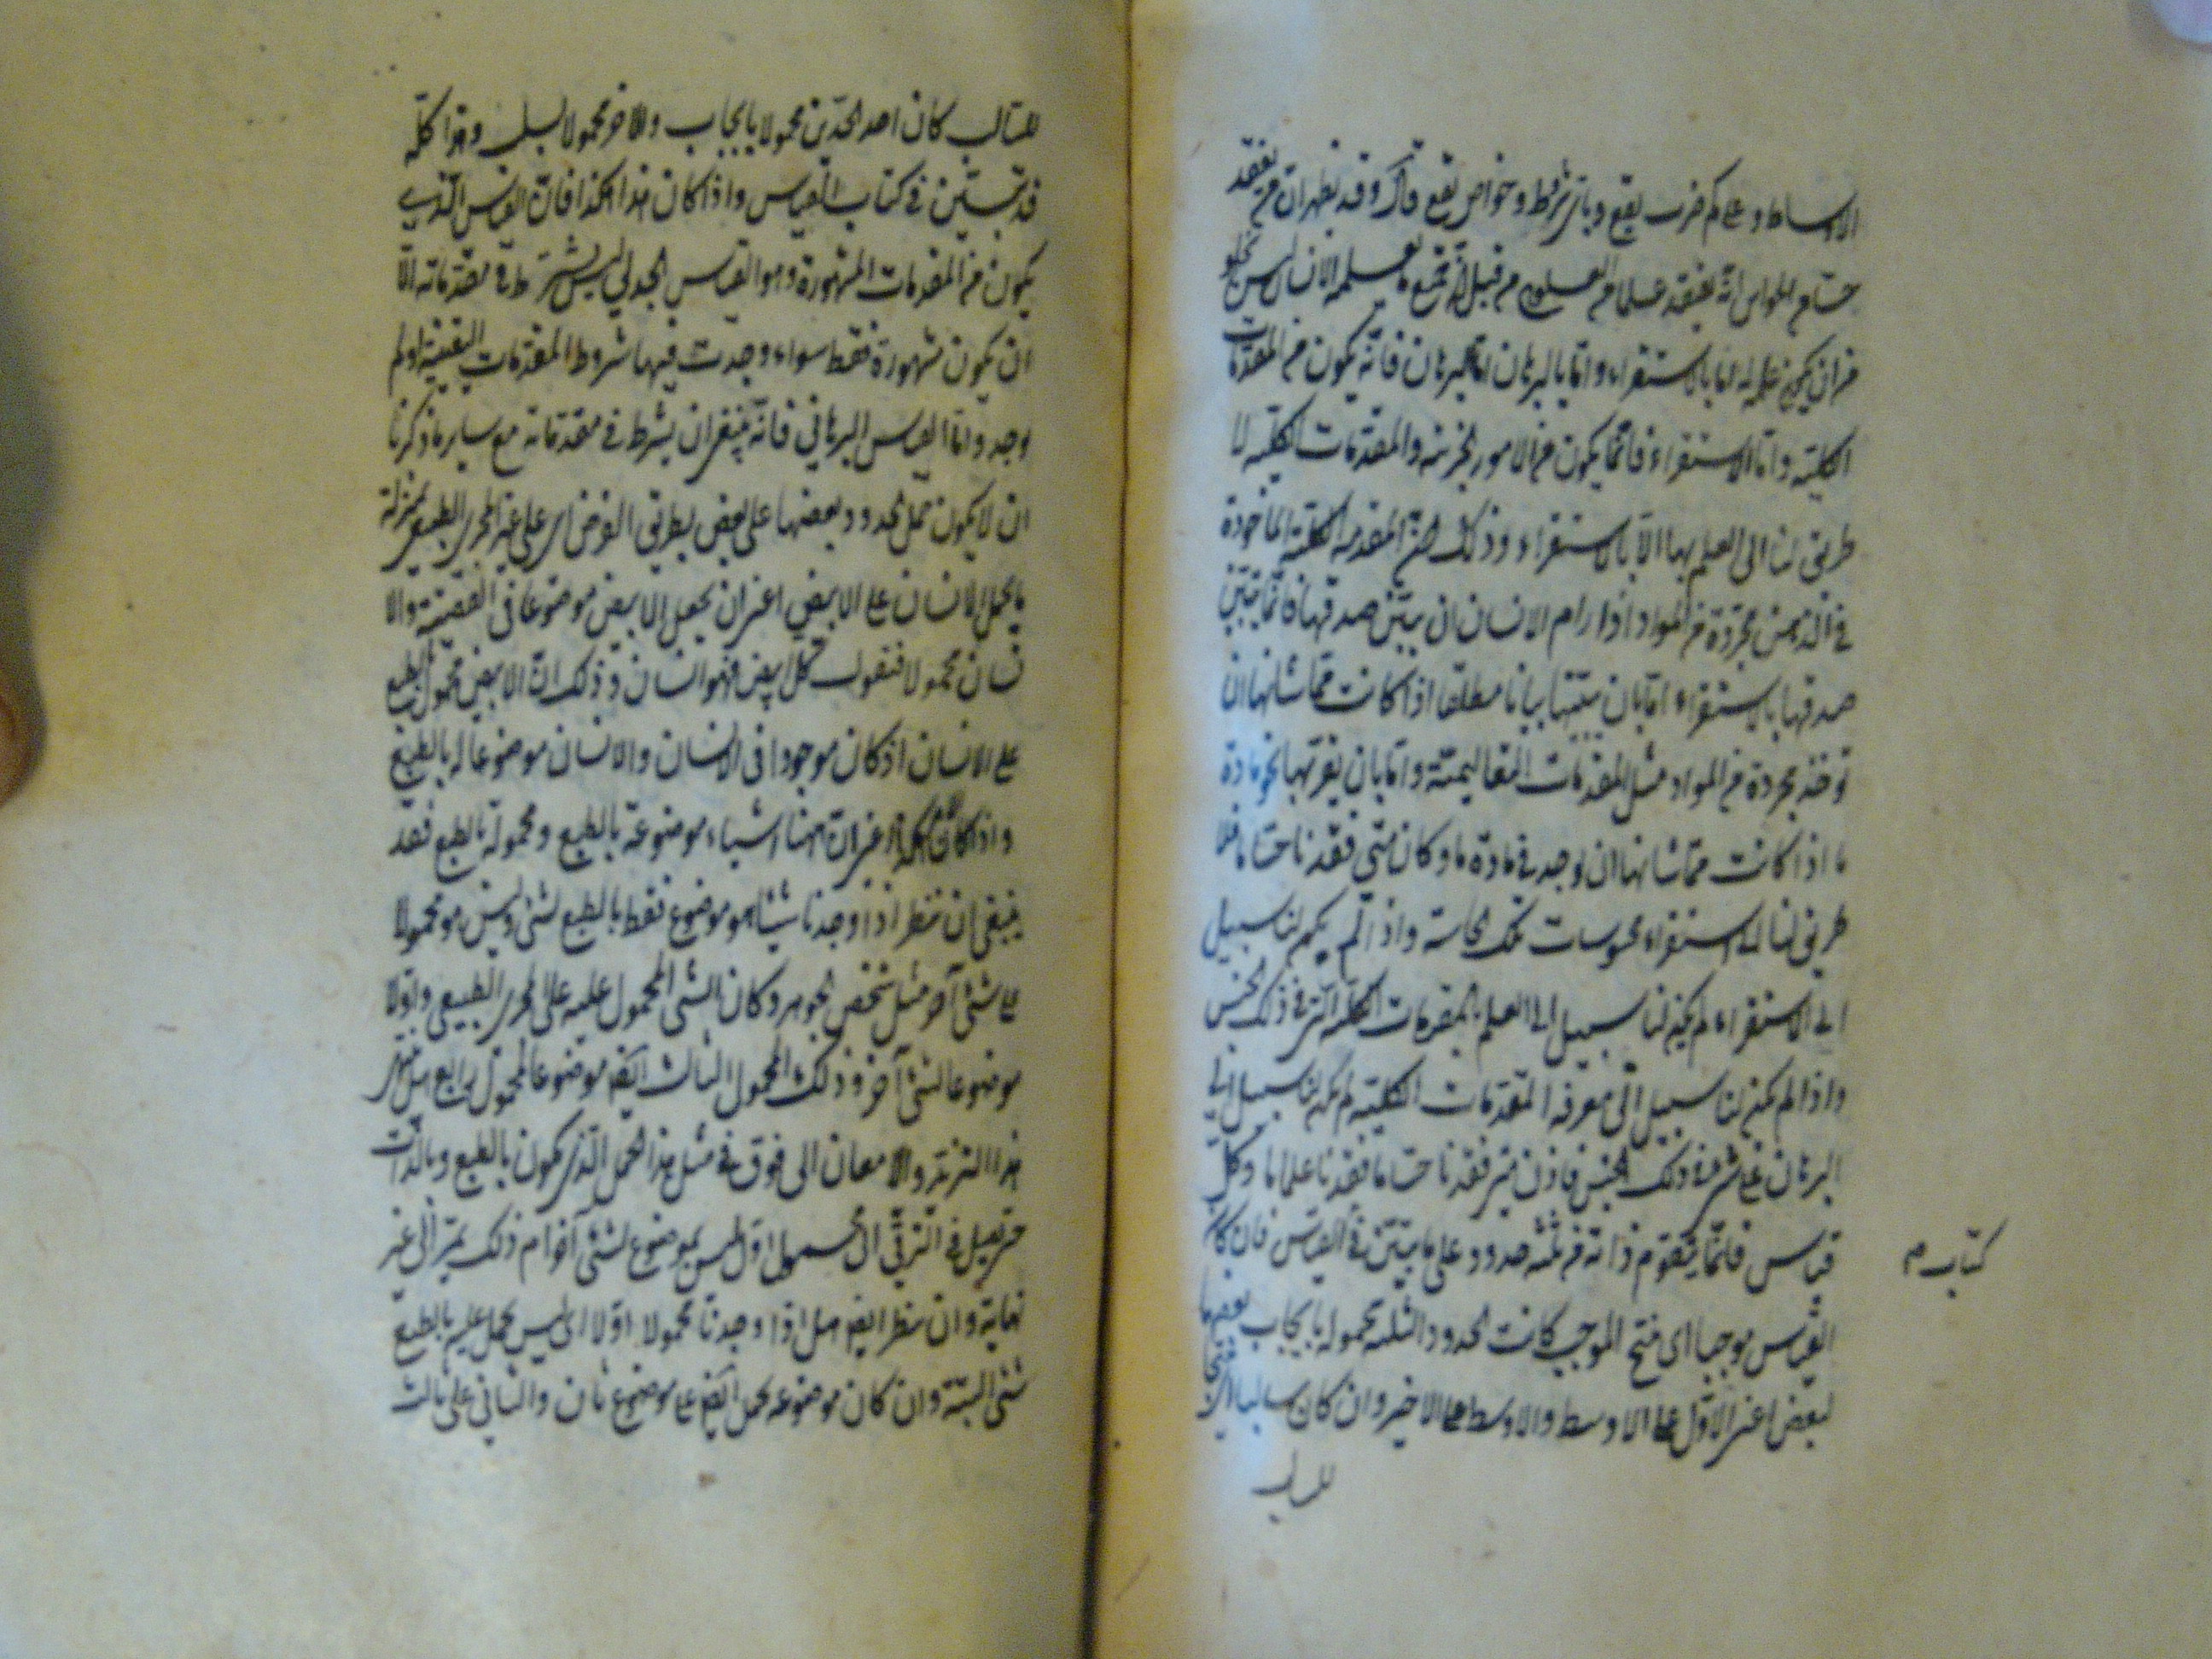 الاوساط وعلى كم ضرب يقع وباى شروط وخواص يقع قال وقد يظهر ان من يفقد
حسا من الحواس انه يفقد علما من العلوم من قبل ان جميع ما يعلمه الانسان ليس يخلو
من ان يكون علمه له اما بالاستقراء واما بالبرهان اما البرهان فانه يكون من المقدمات
الكلية واما الاستقراء فانما يكون من الامور الجزئية والمقدمات الكلية لا
طريق لنا الى العلم بها الا بالاستقراء وذلك ان المقدمة الكلية الماخوذة
في الذهن مجردة من المواد اذا رام الانسان ان يبين صدقها فانما يتبين
صدقها بالاستقراء اما بان يبينها بيانا مطلقا اذا كانت مما شانها ان
توخذ مجردة من المواد مثل المقدمات التعاليمية واما بان يقربها نحو مادة
ما اذا كانت مما شانها ان توجد في مادة ما وكان متى فقدنا حسا ما فلا
طريق لنا الى استقراء محسوسات تلك الحاسة واذا لم يكن لنا سبيل
الى الاستقراء لم يكن لنا سبيل الى العلم بالمقدمات الكلية التى في ذلك الجنس
واذا لم يكن لنا سبيل الى معرفة المقدمات الكلية لم يكن لنا سبيل الى
البرهان على شئ في ذلك الجنس فاذن متى فقدنا حسا ما فقدنا علما ما وكل
قياس فانما يتقوم ذاته من ثلثة حدود على ما يتبين في القياس فان كان
كتاب م
القياس موجبا اى منتج الموجب كانت الحدود الثلثة محمولة بايجاب بعضها
لبعض اعنى الاول على الاوسط والاوسط على الاخير وان كان سالبا اى منتجا
للسالب
للسالب كان احد الحدين محمولا بايجاب والاخر محمولا بسلب وهذا كله
قد تبين في كتاب القياس واذا كان هذا هكذا فان القياس الذى
يكون من المقدمات المشهورة وهو القياس الجدلي ليس يشترط في مقدماته الا
ان يكون مشهورة فقط سواء وجدت فيها شروط المقدمات اليقينية او لم
توجد واما القياس البرهاني فانه ينبغى ان يشترط في مقدماته مع ساير ما ذكرنا
ان لا يكون حمل الحدود بعضها على بعض بطريق العرض اى على غير المجرى الطبيعى بمنزلة
ما يحمل الانسان على الابيض اعنى ان يجعل الابيض موضوعا في القضية والا
نسان محمولا فنقول كل ابيض فهو انسان وذلك ان الابيض محمول بالطبع
على الانسان اذ كان موجودا في الانسان والانسان موضوعا له بالطبع
واذا كان هكذا اعنى ان ههنا اشياء موضوعة بالطبع ومحمولة بالطبع فقد
ينبغى ان ننظر اذا وجدنا شيئا هو موضوع فقط بالطبع لشئ وليس هو محمولا
على شئ آخر مثل شخص الجوهر وكان الشئ المحمول عليه على المجرى الطبيعى واولا
موضوعا لشئ آخر وذلك المحمول الثالث ايضا موضوعا لمحمول رابع هل ينتهى
هذا التزيد والامعان الى فوق في مثل هذا الحمل الذى يكون بالطبع وبالذات
حتى يصل في الترقى الى محمول اول ليس بموضوع لشئ آخر ام ذلك يمر الى غير
نهاية وان ننظر ايضا هل اذا وجدنا محمولا اولا اى ليس يحمل عليه بالطبع
شئ البتة وان كان موضوعه يحمل ايضا على موضوع ثان والثاني على ثالث